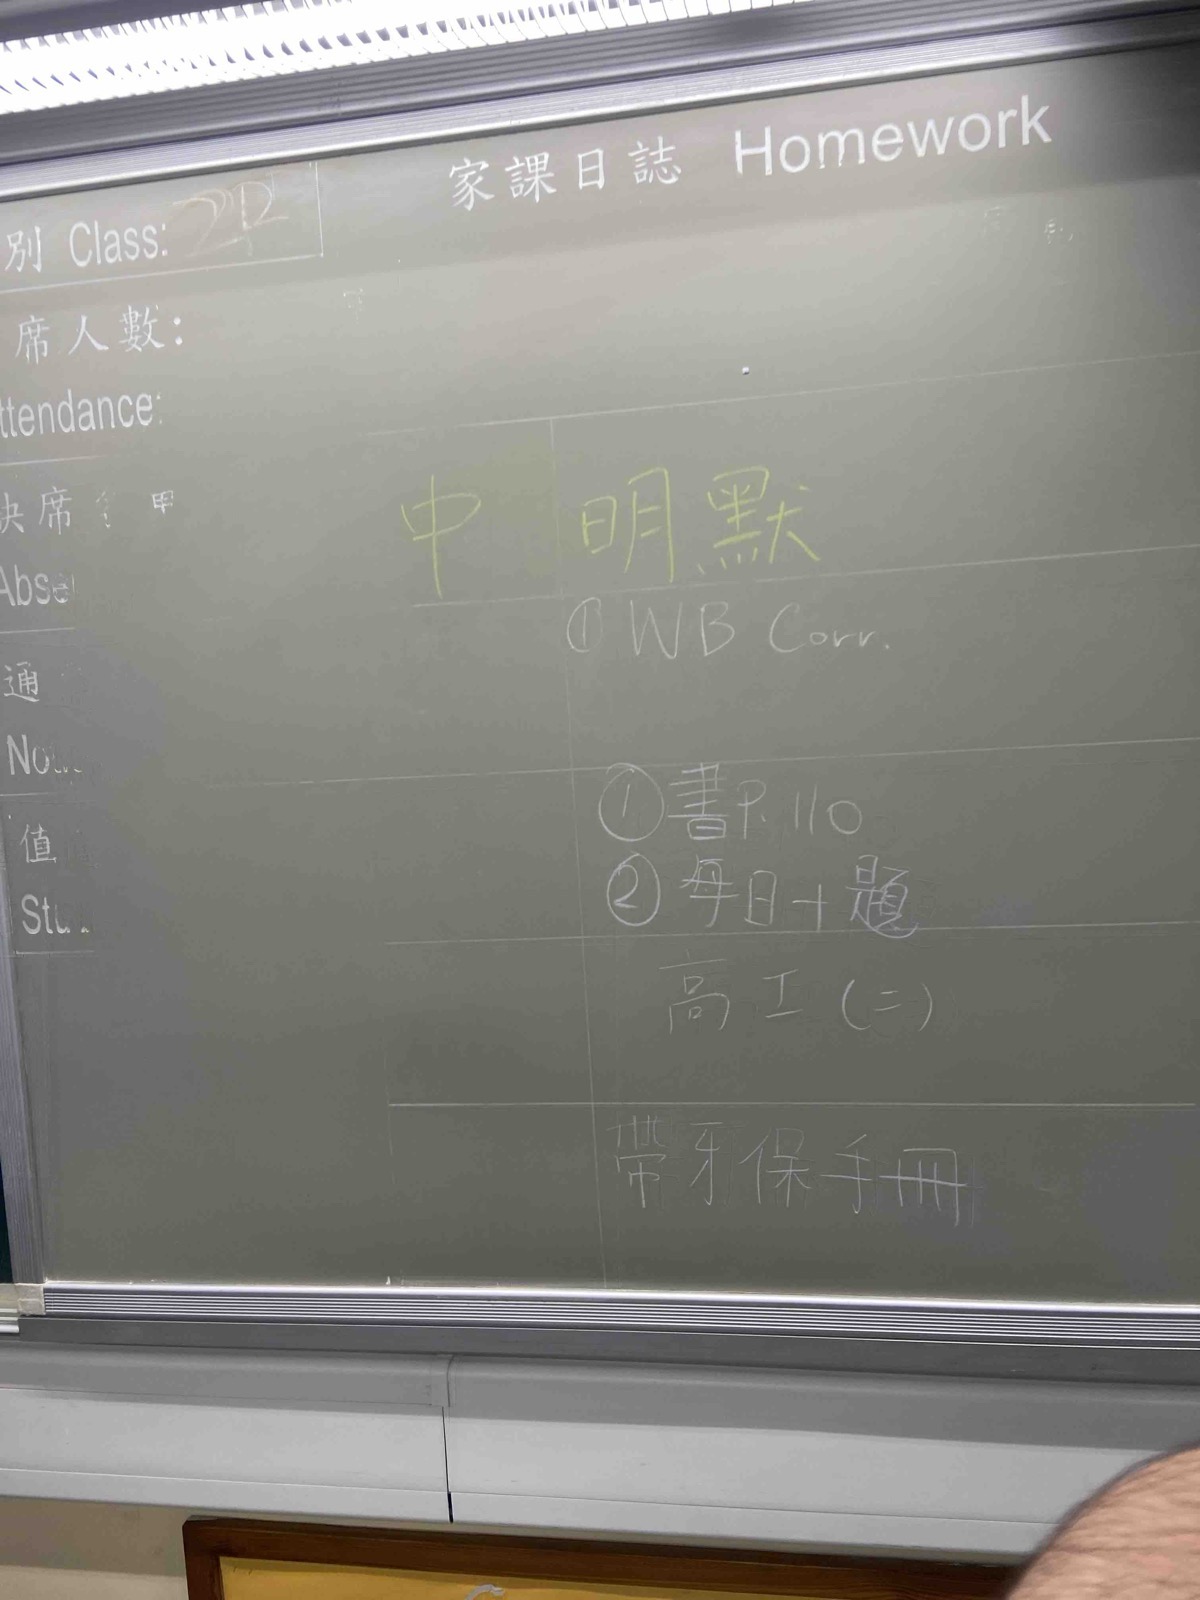 家課日誌 Homework
別 Class:
席人數:
ttendance:
缺席
Abse
通
No
值
Stu
中 明默
① WB Corr.
① 書P.110
② 每日十題
高工(二)
帶牙保手冊